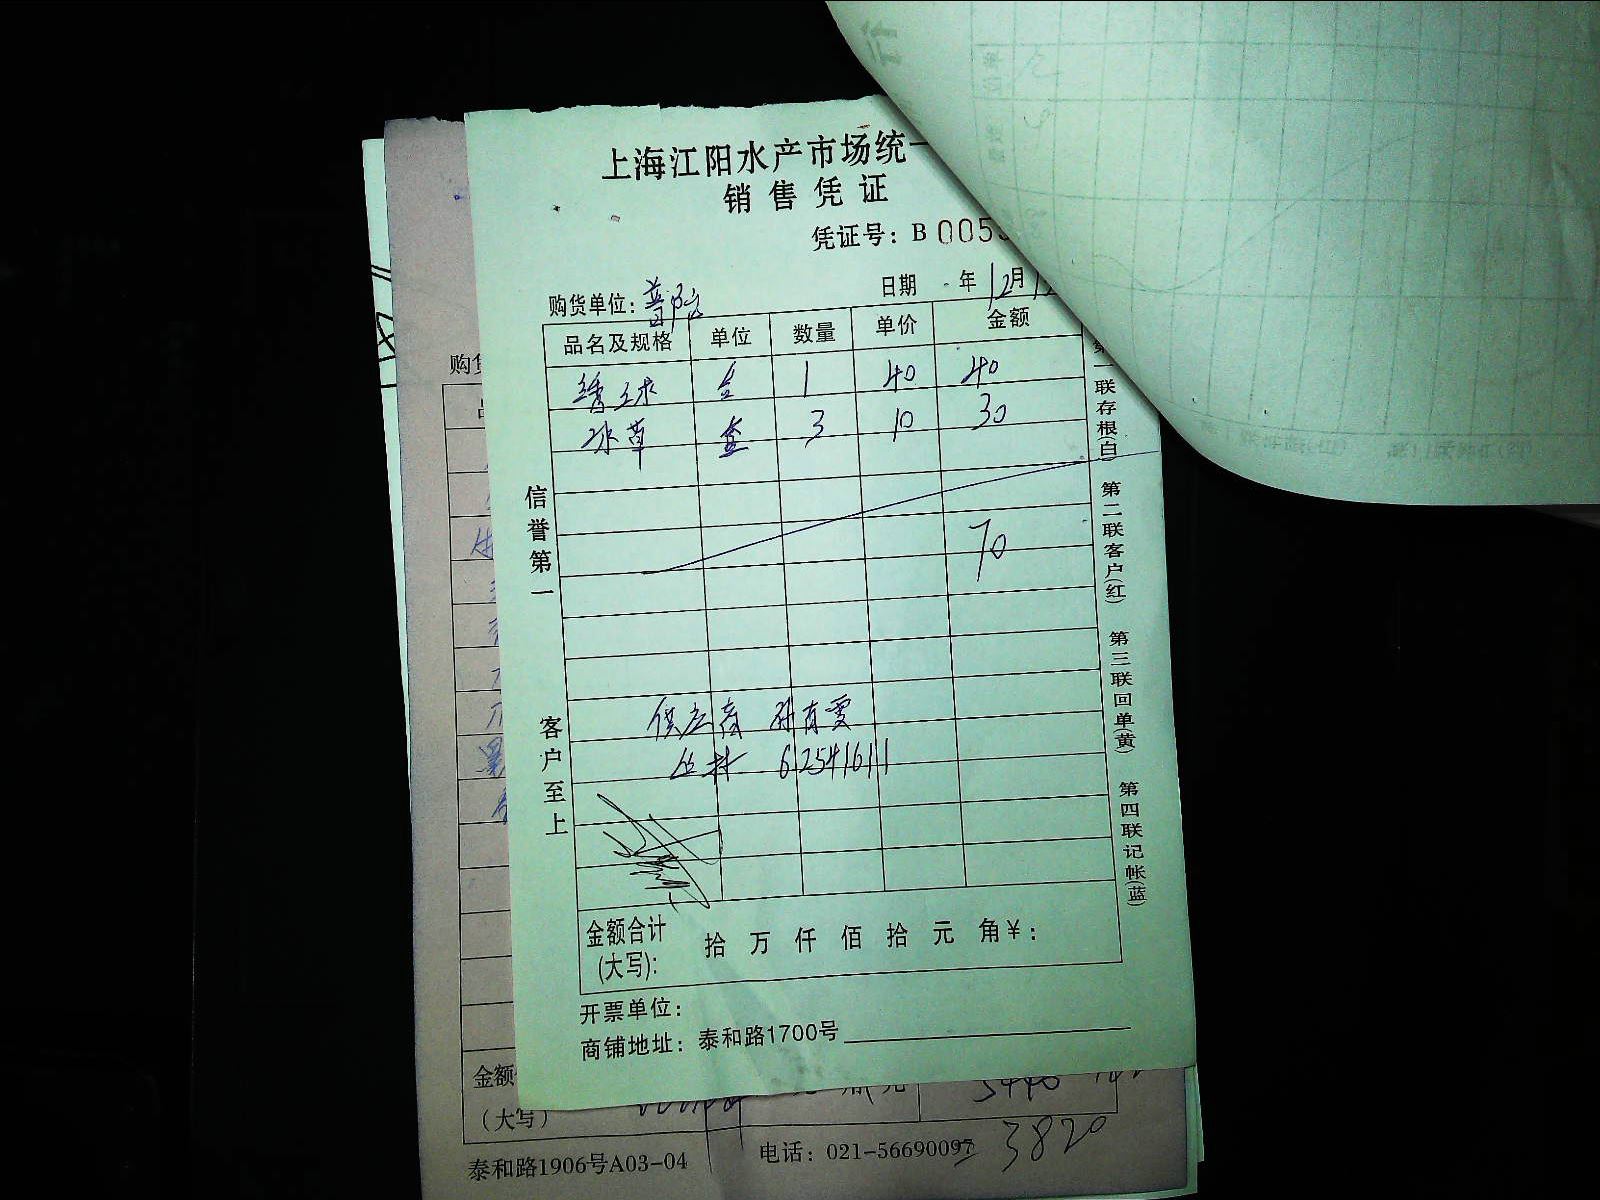 上海江阳水产市场统一
销售凭证
凭证号：B 005
购货单位：普陀 日期 年12月
品名及规格 单位 数量 单价 金额
绣球 盒 1 40 40
冰草 盒 3 10 30
70
供应商 孙育雯
丛林 62541611
金额合计
(大写)： 拾 万 仟 佰 拾 元 角 ¥：
开票单位：
商铺地址：泰和路1700号
信誉第一
客户至上
第一联存根(白) 第二联客户(红) 第三联回单(黄) 第四联记帐(蓝)
购
金额
（大写）
泰和路1906号A03-04 电话：021-56690097 3820